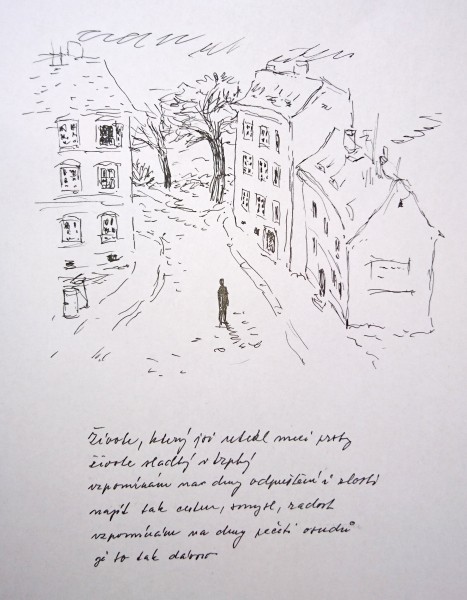 živote, který jsi utekl mezi prsty
živote sladký i trpký
vzpomínám na dny odpuštění i zlosti
najít tak cestu, smysl, radost
vzpomínám na dny pečeti osudů
je to tak dávno